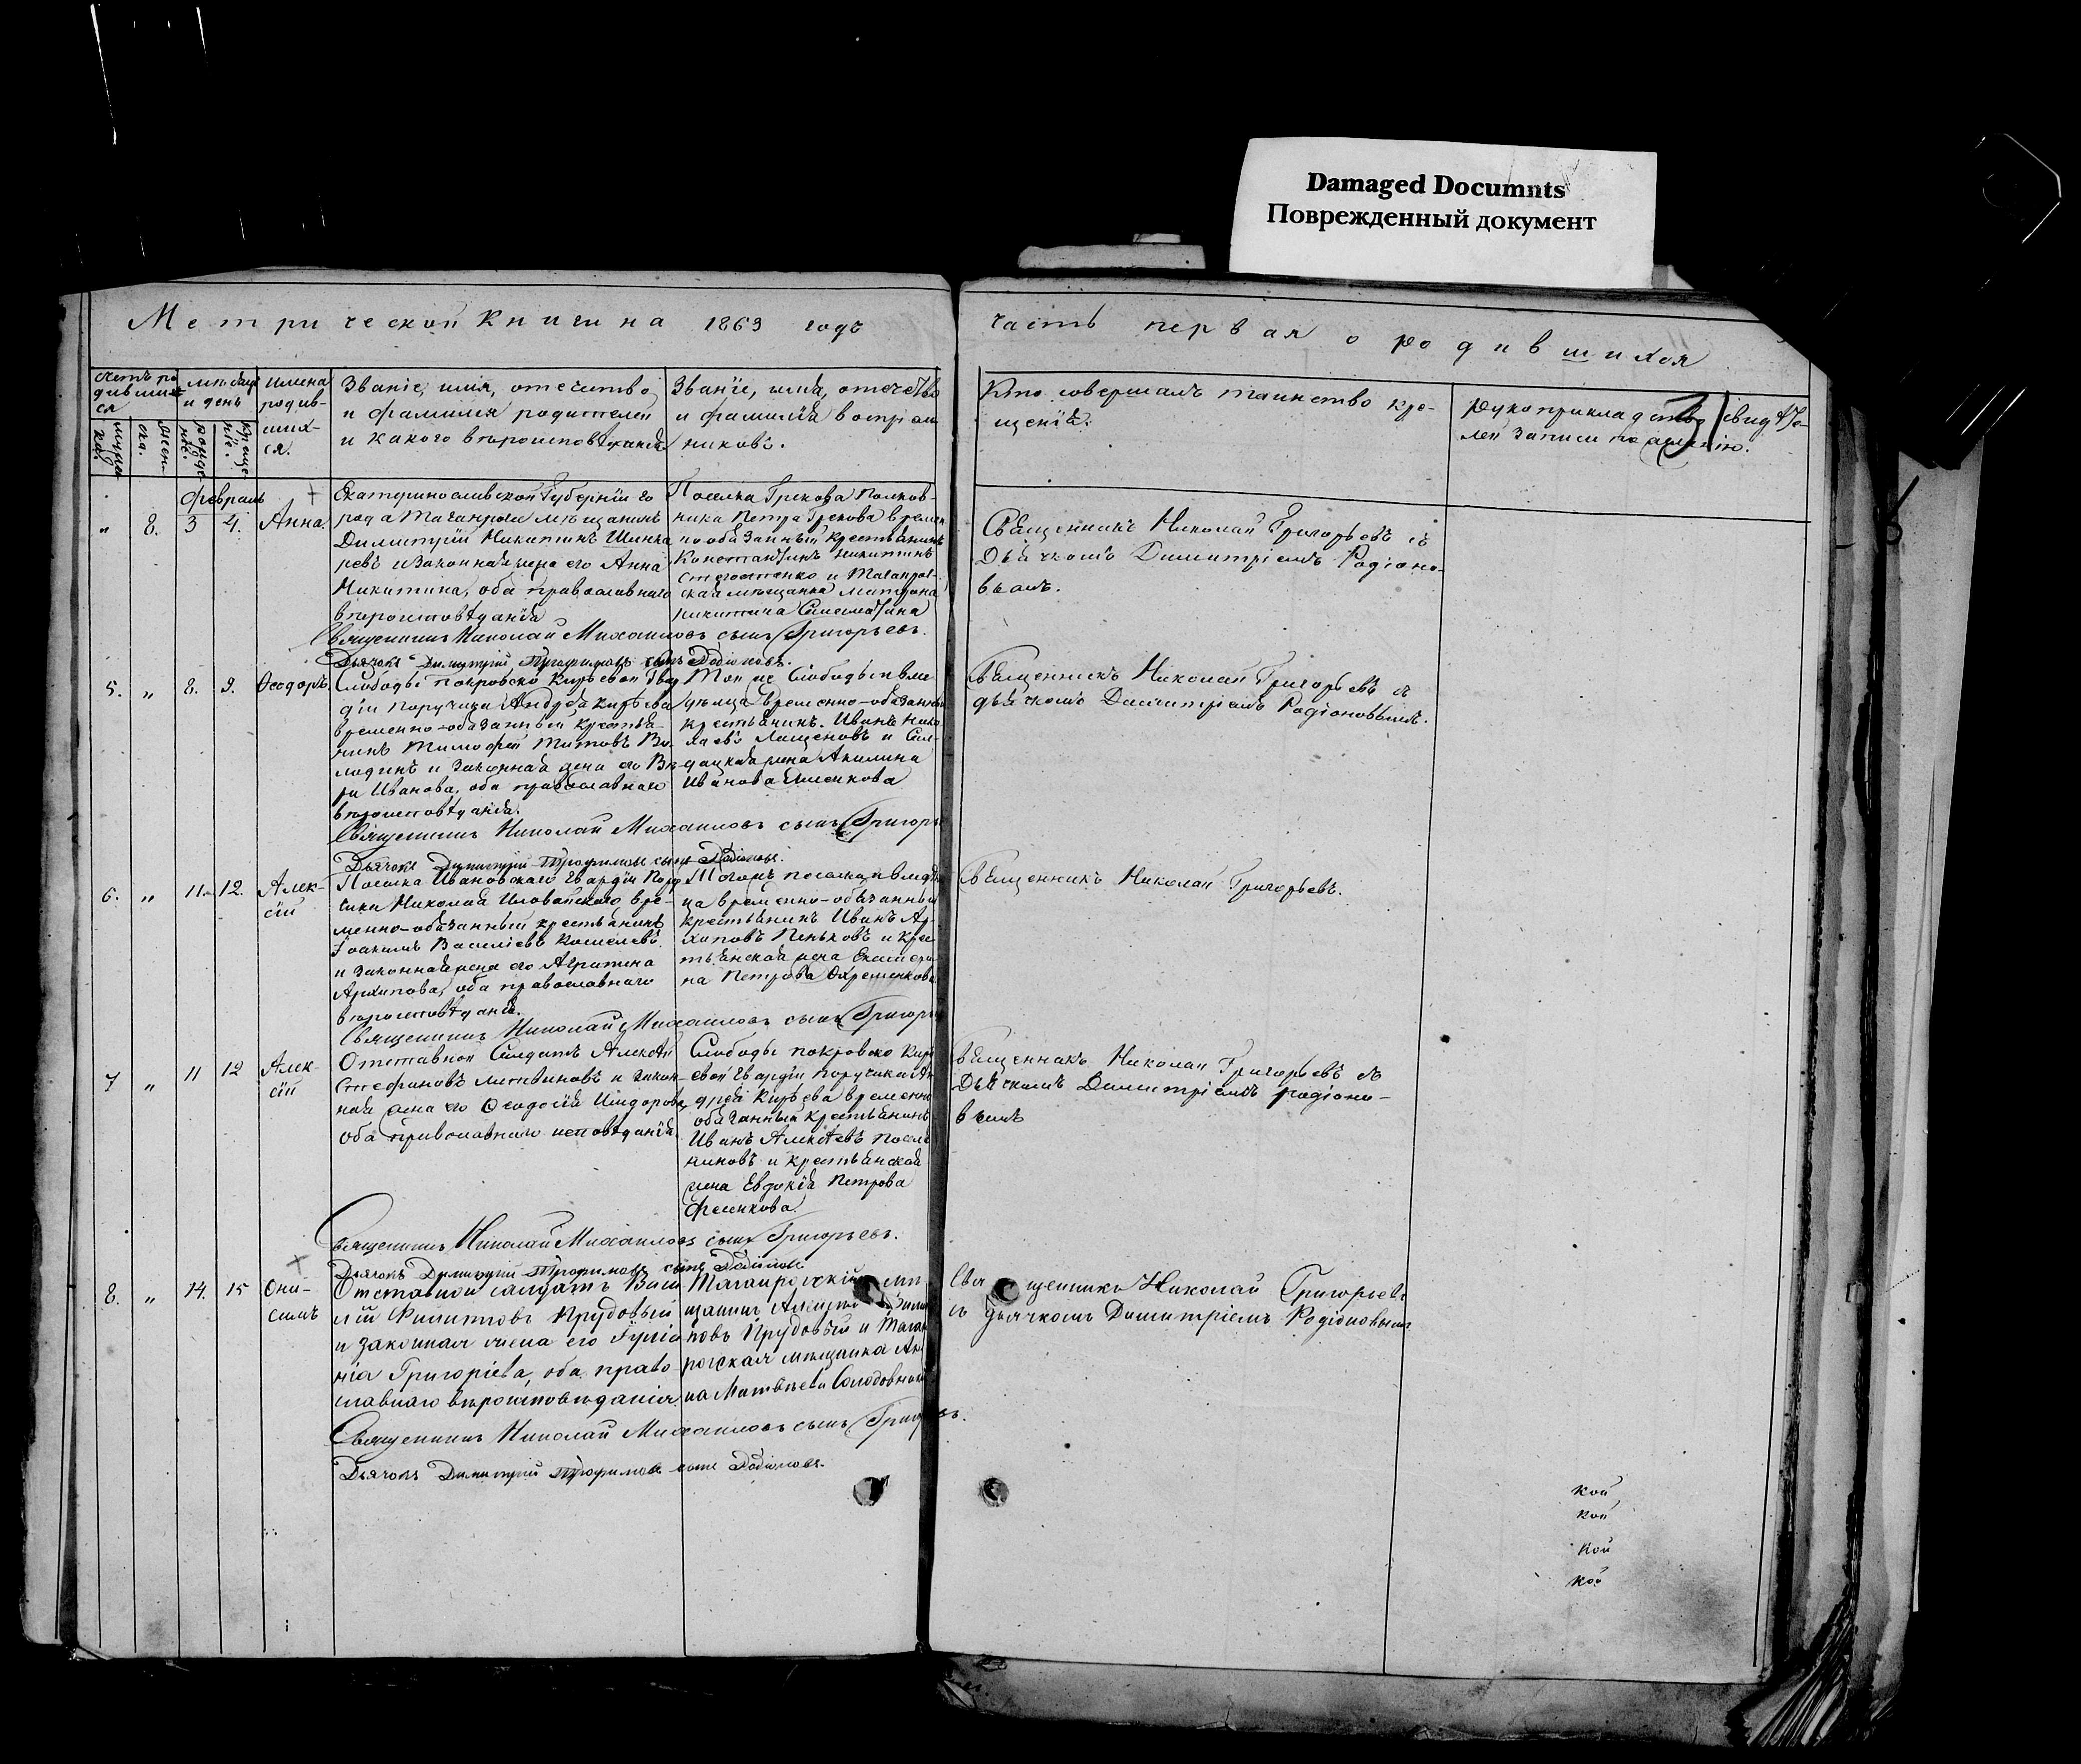 Damaged Documnts
Поврежденный документ
Метрической книги на 1869 годъ
часть первая о родившихся
счетъ ро
дивших
ся
мѣсяцъ
и день
имена
родив-
ших-
ся.
Званіе, имя, отечество,
и фамилія родителей
и какого вѣроисповѣданія
Званіе, имя, отечество
и фамилія воспріем
никовъ.
Кто совершалъ таинство кре-
щенія.
Рукоприкладство свидѣте-
лей записи по желанію.
мужска.
женска.
рожденіе.
крещеніе.
Февраль
" 8. 3 4. Анна.
Екатеринославской Губерніи го
рода Таганрога мѣщанинъ
Димитрій Никитинъ Шинка
ревъ и законная жена его Анна
Никитина, оба православнаго
вѣроисповѣданія
Поселка Грекова Полков-
ника Петра Грекова времен
но обязанный крестьянинъ
Константинъ Никитинъ
и Таганрог-
ская мѣщанка Матрона
Никитина
Священникъ Николай Григорьевъ съ
Дьячкомъ Димитріемъ Родіоно-
вымъ.
Священникъ Николай Михаиловъ сынъ Григорьевъ.
Дьячокъ Димитрій Трофимовъ сынъ Родіоновъ.
5. " 8. 9. Ѳеодоръ.
Слободы Покровско Кирѣевой Гвар
діи поручика Андрея Кирѣева
временно-обязанный крестья-
нинъ Тимофей Титовъ Во-
лодинъ и законная жена его
Иванова, оба православнаго
вѣроисповѣданія.
Той же Слободы и вла
дѣльца временно-обязанный
крестьянинъ Иванъ Нико
лаевъ и Сол-
датская жена Акилина
Иванова
Священникъ Николай Григорьевъ съ
дьячкомъ Димитріемъ Родіоновымъ.
Священникъ Николай Михаиловъ сынъ Григорь
Дьячокъ Димитрій Трофимовъ сынъ Родіоновъ.
6. " 11. 12. Алек-
сій
Поселка Ивановскаго Гвардіи Пору
чика Николая Иловайскаго вре-
менно-обязанный крестьянинъ
Іоакимъ Василіевъ Кошелевъ
и законная жена его Агрипина
Архипова, оба православнаго
вѣроисповѣданія.
Тогожъ поселка и владѣль
ца временно-обязанный
крестьянинъ Иванъ Ар-
хиповъ Пеньковъ и крес
тьянская жена Екатери-
на Петрова Охременкова
Священникъ Николай Григорьевъ.
Священникъ Николай Михаиловъ сынъ Григорь
7 " 11 12 Алек-
сій
Отставной Солдатъ Алексѣй
Стефановъ Литвиновъ и закон-
ная жена его Ѳеодосія Исидорова,
оба православнаго исповѣданія.
Слободы Покровско Кирѣ
евой Гвардіи поручика Ан
дрея Кирѣева временно
обязанный крестьянинъ
Иванъ Алексѣевъ
и крестьянская
жена Евдокія Петрова
Фоменкова.
Священникъ Николай Григорьевъ съ
Дьячкомъ Димитріемъ Родіоно-
вымъ
Священникъ Николай Михаиловъ сынъ Григорьевъ.
Дьячокъ Димитрій Трофимовъ сынъ Родіоновъ
8. " 14. 15 Они-
симъ
Отставной солдатъ Васи
лій Филиповъ Прудовый
и законная жена его Іуліа
нія Григоріева, оба право-
славнаго вѣроисповѣданія.
Таганрогскій мѣ
щанинъ Алексѣй Фили
повъ Прудовый и Таган
рогская мѣщанка Ан
на Матвѣева Солодовник
Священникъ Николай Григорьевъ
съ дьячкомъ Димитріемъ Родіоновымъ
Священникъ Николай Михаиловъ сынъ Григорьевъ.
Дьячокъ Димитрій Трофимовъ сынъ Родіоновъ.
кой
кой
кой
кой